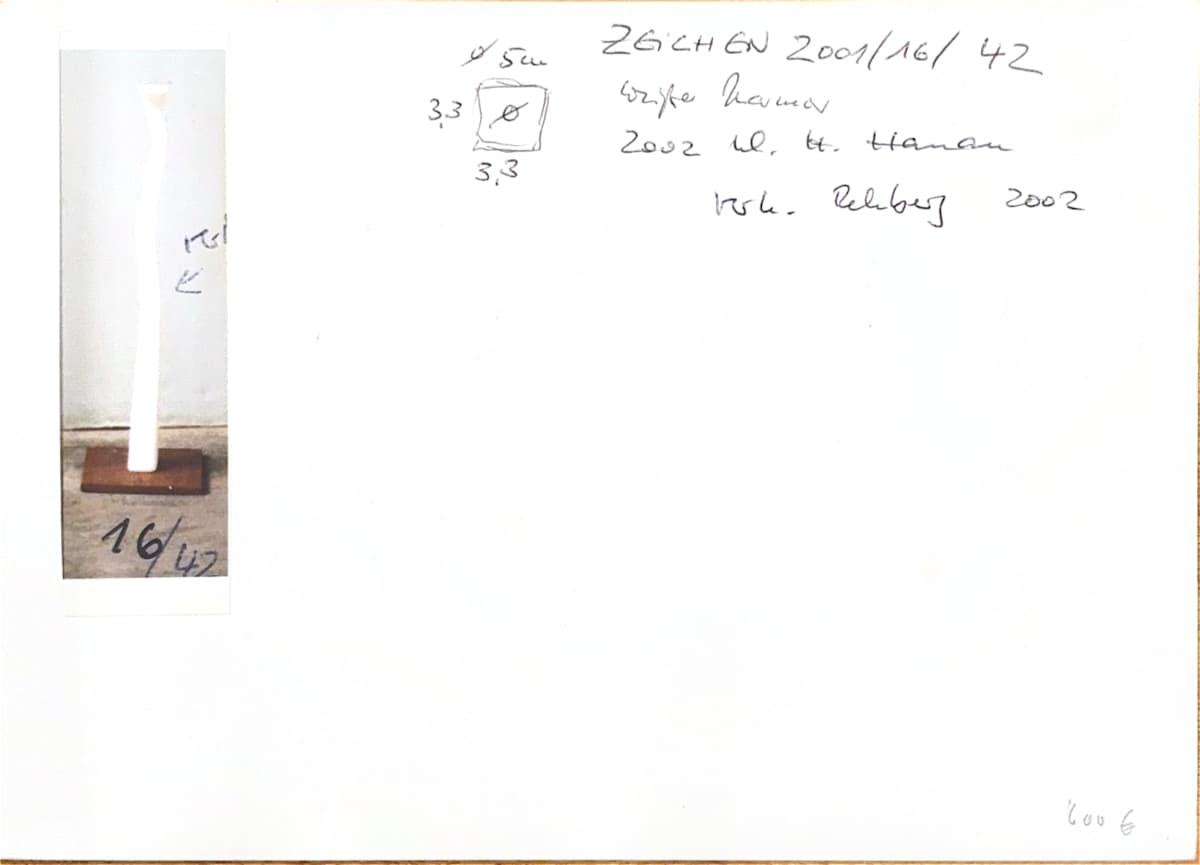 ZEICHEN 2001/16/42
Ø 5cm
weißer Marmor
3,3 Ø
2002 Kl. H. Hanau
3,3
verk. Rehberg 2002
verk
16/42
600 €